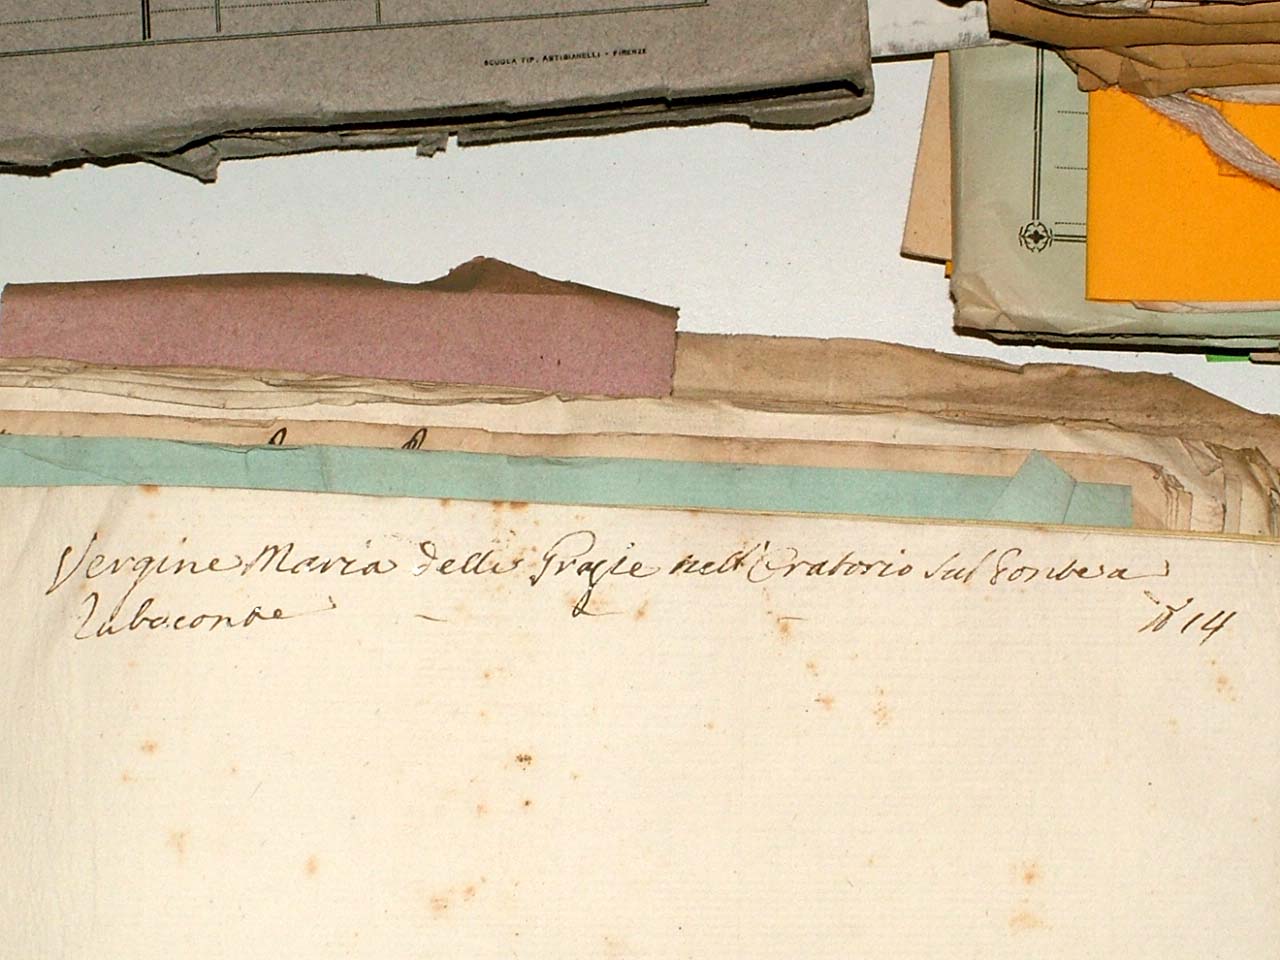 SCUOLA TIP. ARTIGIANELLI - FIRENZE
Vergine Maria delle Grazie nell'Oratorio sul Ponte a
Rubaconte
N° 14